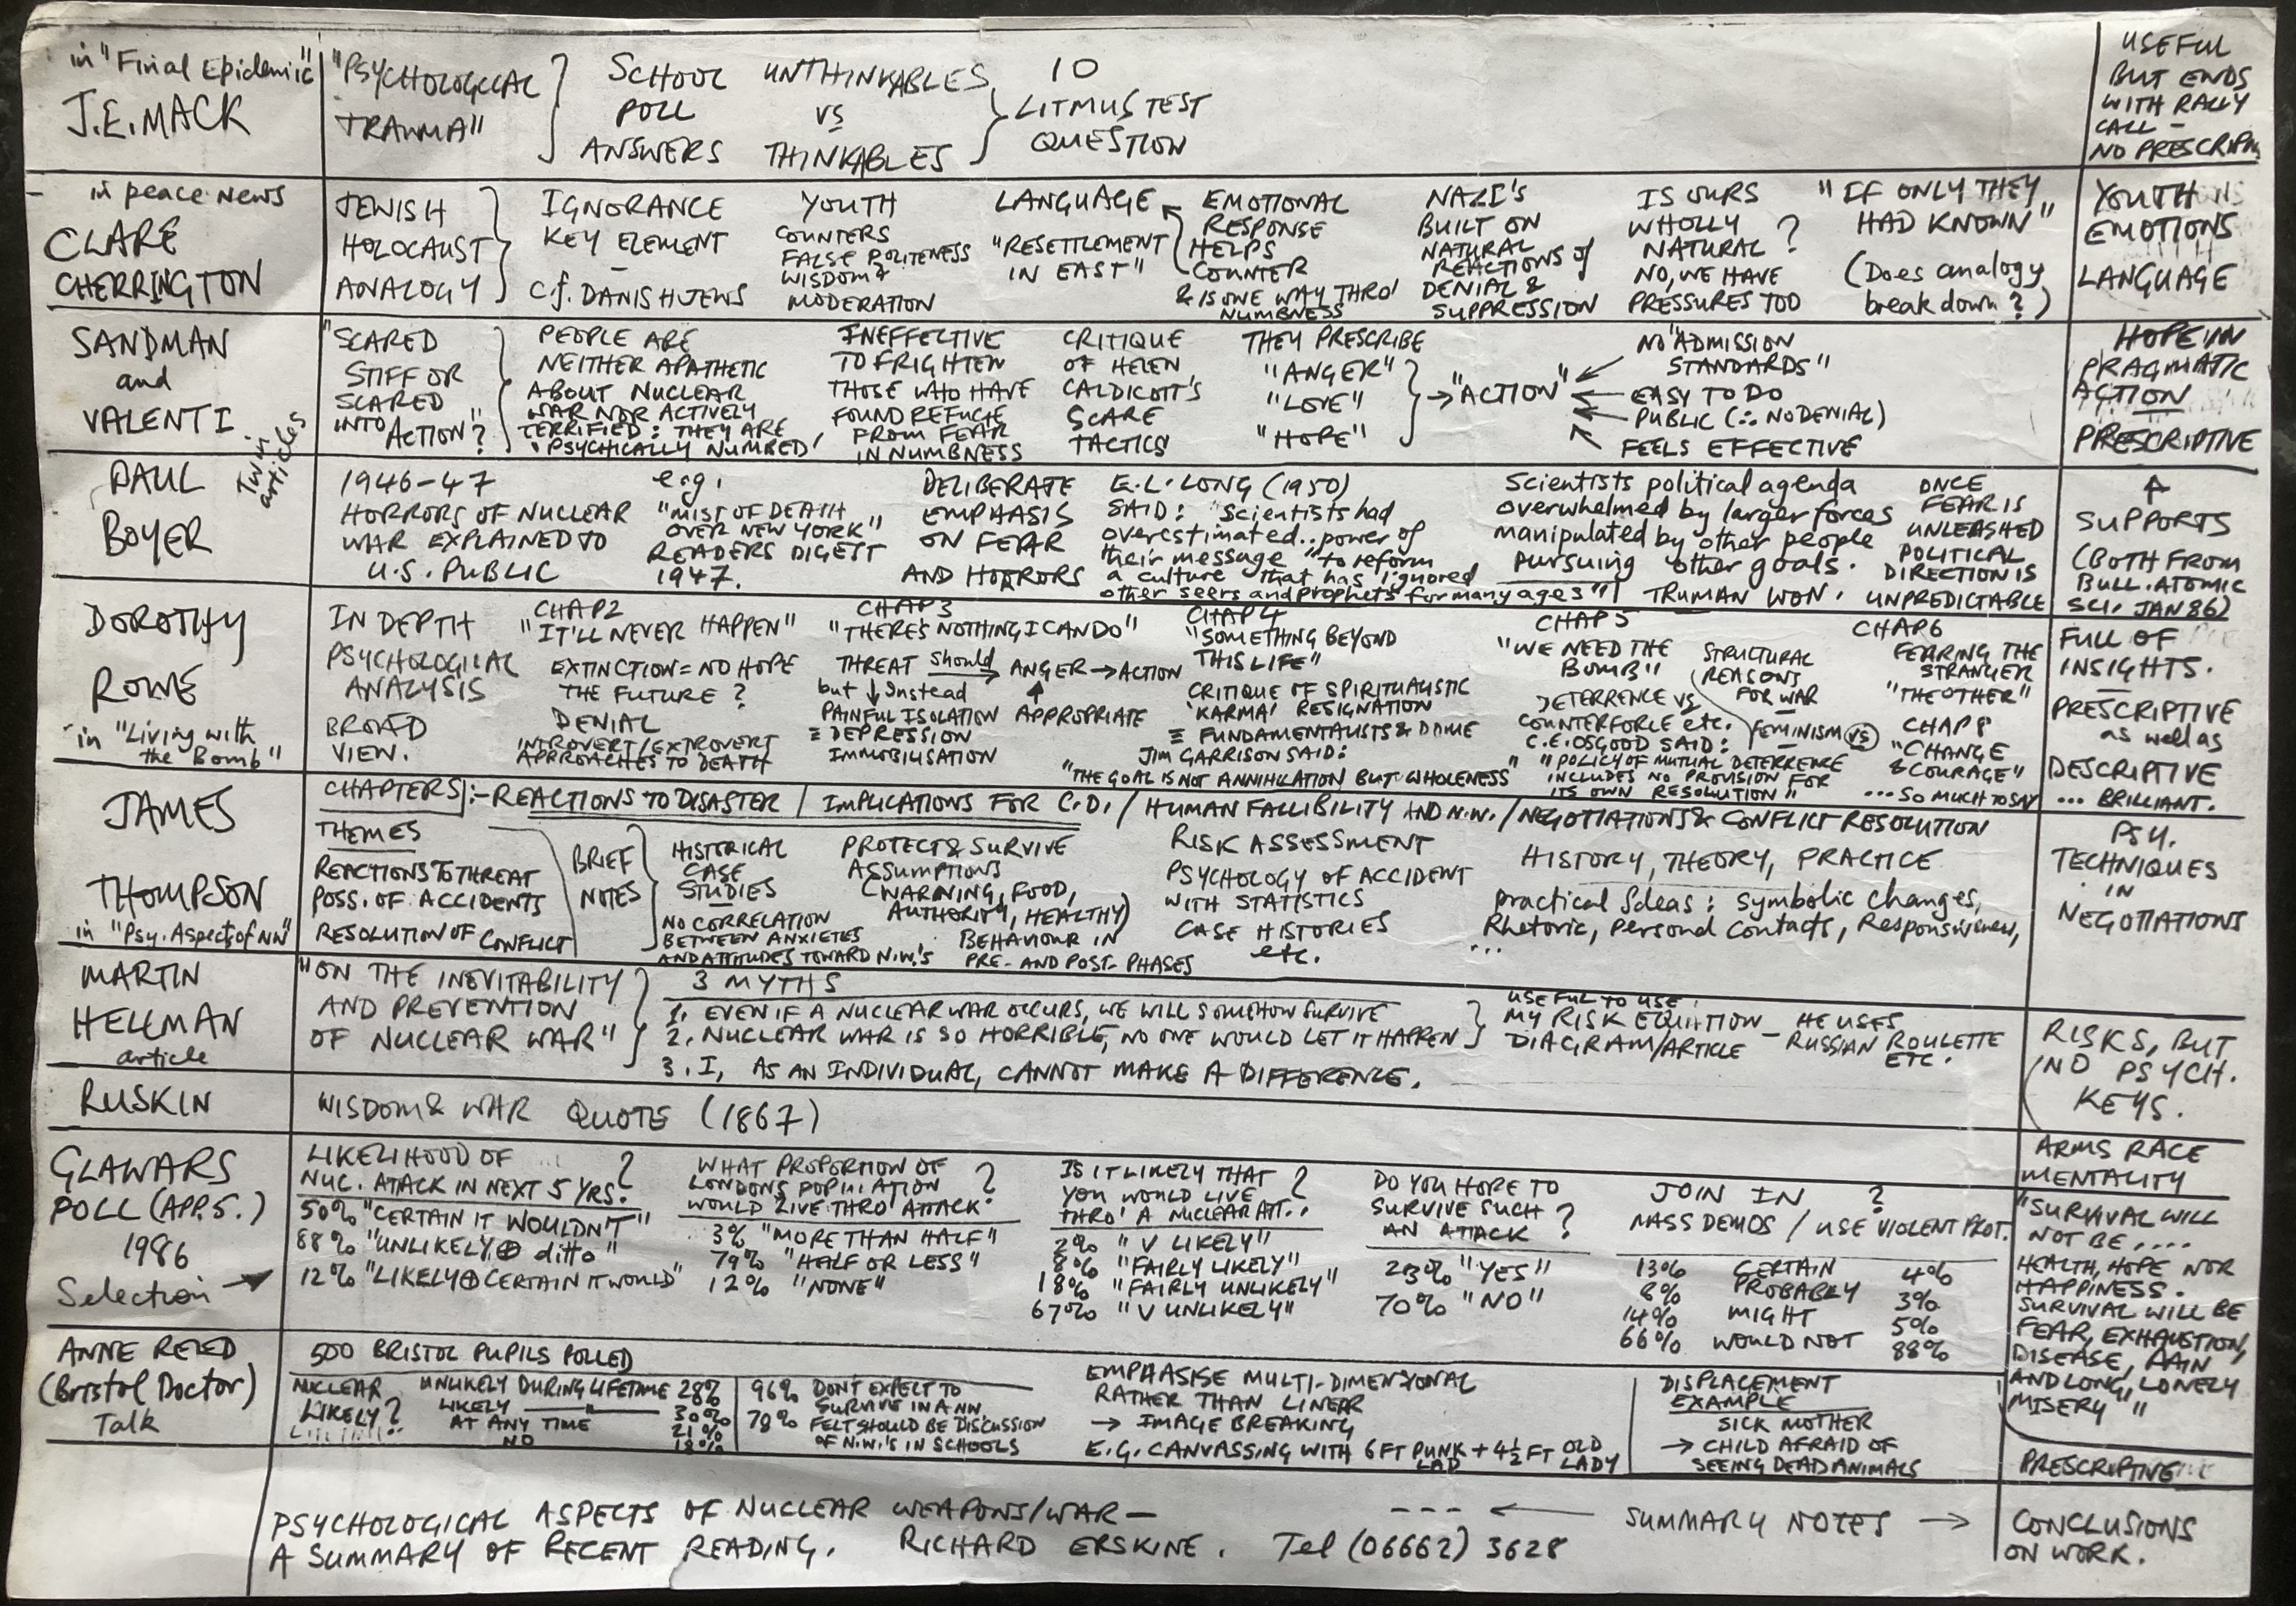 in "Final Epidemic"
J.E. MACK
"PSYCHOLOGICAL
TRAUMA"
SCHOOL
POLL
ANSWERS
UNTHINKABLES
VS
THINKABLES
10
LITMUS TEST
QUESTION
USEFUL
BUT ENDS
WITH RALLY
CALL –
NO PRESCRIPTN
in peace news
CLARE
CHERRINGTON
JEWISH
HOLOCAUST
ANALOGY
IGNORANCE
KEY ELEMENT
–
c.f. DANISH JEWS
YOUTH
COUNTERS
FALSE POLITENESS
WISDOM &
MODERATION
LANGUAGE
"RESETTLEMENT
IN EAST"
EMOTIONAL
RESPONSE
HELPS
COUNTER
& IS ONE WAY THRO'
NUMBNESS
NAZI'S
BUILT ON
NATURAL
REACTIONS of
DENIAL &
SUPPRESSION
IS OURS
WHOLLY
NATURAL ?
NO, WE HAVE
PRESSURES TOO
"IF ONLY THEY
HAD KNOWN"
(Does analogy
break down?)
YOUTH
EMOTIONS
LANGUAGE
SANDMAN
and
VALENTI
"SCARED
STIFF OR
SCARED
INTO ACTION?"
PEOPLE ARE
NEITHER APATHETIC
ABOUT NUCLEAR
WAR NOR ACTIVELY
TERRIFIED: THEY ARE
'PSYCHICALLY NUMBED'
INEFFECTIVE
TO FRIGHTEN
THOSE WHO HAVE
FOUND REFUGE
FROM FEAR
IN NUMBNESS
CRITIQUE
OF HELEN
CALDICOTT'S
SCARE
TACTICS
THEY PRESCRIBE
"ANGER"
"LOVE"
"HOPE"
→ "ACTION"
NO "ADMISSION
STANDARDS"
EASY TO DO
PUBLIC (∴ NO DENIAL)
FEELS EFFECTIVE
HOPE IN
PRAGMATIC
ACTION
PRESCRIPTIVE
Twin
articles
PAUL
BOYER
1946-47
HORRORS OF NUCLEAR
WAR EXPLAINED TO
U.S. PUBLIC
e.g.
"MIST OF DEATH
OVER NEW YORK"
READERS DIGEST
1947.
DELIBERATE
EMPHASIS
ON FEAR
AND HORRORS
E.L. LONG (1950)
SAID: "Scientists had
overestimated .. power of
their message "to reform
a culture that has ignored
other seers and prophets for many ages"
Scientists political agenda
overwhelmed by larger forces
manipulated by other people
pursuing other goals.
TRUMAN WON.
ONCE
FEAR IS
UNLEASHED
POLITICAL
DIRECTION IS
UNPREDICTABLE
↑
SUPPORTS
(BOTH FROM
BULL. ATOMIC
SCI. JAN 86)
DOROTHY
ROWE
in "Living with
the Bomb"
IN DEPTH
PSYCHOLOGICAL
ANALYSIS
BROAD
VIEW.
CHAP 2
"IT'LL NEVER HAPPEN"
EXTINCTION = NO HOPE
THE FUTURE ?
DENIAL
INTROVERT/EXTROVERT
APPROACHES TO DEATH
CHAP 3
"THERE'S NOTHING I CAN DO"
THREAT should → ANGER → ACTION
but ↓ instead ↑
PAINFUL ISOLATION APPROPRIATE
≡ DEPRESSION
IMMOBILISATION
CHAP 4
"SOMETHING BEYOND
THIS LIFE"
CRITIQUE OF SPIRITUALISTIC
'KARMA' RESIGNATION
≡ FUNDAMENTALISTS & DOME
JIM GARRISON SAID:
"THE GOAL IS NOT ANNIHILATION BUT WHOLENESS"
CHAP 5
"WE NEED THE
BOMB"
DETERRENCE VS
COUNTERFORCE etc.
C.E. OSGOOD SAID:
"POLICY OF MUTUAL DETERRENCE
INCLUDES NO PROVISION FOR
ITS OWN RESOLUTION"
STRUCTURAL
REASONS
FOR WAR
–
FEMINISM VS
CHAP 6
FEARING THE
STRANGER
"THE OTHER"
CHAP 8
"CHANGE
& COURAGE"
... SO MUCH TO SAY
FULL OF
INSIGHTS.
–
PRESCRIPTIVE
as well as
DESCRIPTIVE
... BRILLIANT.
JAMES
THOMPSON
in "Psy. Aspects of NW"
CHAPTERS :- REACTIONS TO DISASTER / IMPLICATIONS FOR C.D. / HUMAN FALLIBILITY AND N.W. / NEGOTIATIONS & CONFLICT RESOLUTION
THEMES
REACTIONS TO THREAT
POSS. OF ACCIDENTS
RESOLUTION OF CONFLICT
BRIEF
NOTES
HISTORICAL
CASE
STUDIES
NO CORRELATION
BETWEEN ANXIETIES
AND ATTITUDES TOWARD N.W.'s
PROTECT & SURVIVE
ASSUMPTIONS
(WARNING, FOOD,
AUTHORITY, HEALTHY)
BEHAVIOUR IN
PRE- AND POST- PHASES
RISK ASSESSMENT
PSYCHOLOGY OF ACCIDENT
WITH STATISTICS
CASE HISTORIES
etc.
HISTORY, THEORY, PRACTICE
practical Ideas: symbolic changes,
Rhetoric, Personal Contacts, Responsiveness,
...
PSY.
TECHNIQUES
IN
NEGOTIATIONS
MARTIN
HELLMAN
article
"ON THE INEVITABILITY
AND PREVENTION
OF NUCLEAR WAR"
3 MYTHS
1. EVEN IF A NUCLEAR WAR OCCURS, WE WILL SOMEHOW SURVIVE
2. NUCLEAR WAR IS SO HORRIBLE, NO ONE WOULD LET IT HAPPEN
3. I, AS AN INDIVIDUAL, CANNOT MAKE A DIFFERENCE.
USEFUL TO USE
MY RISK EQUATION
DIAGRAM/ARTICLE
– HE USES
RUSSIAN ROULETTE
ETC.
RISKS, BUT
NO PSYCH.
KEYS.
RUSKIN
WISDOM & WAR QUOTE (1867)
ARMS RACE
MENTALITY
GLAWARS
POLL (APP. 5.)
1986
Selection →
LIKELIHOOD OF
NUC. ATACK IN NEXT 5 YRS. ?
50% "CERTAIN IT WOULDN'T"
88% "UNLIKELY ⊕ ditto"
12% "LIKELY ⊕ CERTAIN IT WOULD"
WHAT PROPORTION OF
LONDONS POPULATION
WOULD LIVE THRO' ATTACK ?
3% "MORE THAN HALF"
79% "HALF OR LESS"
12% "NONE"
IS IT LIKELY THAT
YOU WOULD LIVE
THRO' A NUCLEAR ATT.. ?
2% "V LIKELY"
8% "FAIRLY LIKELY"
18% "FAIRLY UNLIKELY"
67% "V UNLIKELY"
DO YOU HOPE TO
SURVIVE SUCH
AN ATTACK ?
23% "YES"
70% "NO"
JOIN IN ?
MASS DEMOS / USE VIOLENT PROT.
13% CERTAIN 4%
8% PROBABLY 3%
14% MIGHT 5%
66% WOULD NOT 88%
"SURVIVAL WILL
NOT BE ....
HEALTH, HOPE NOR
HAPPINESS.
SURVIVAL WILL BE
FEAR, EXHAUSTION,
DISEASE, PAIN
AND LONG, LONELY
MISERY""
ANNE REED
(Bristol Doctor)
Talk
500 BRISTOL PUPILS POLLED
NUCLEAR
LIKELY?
UNLIKELY DURING LIFETIME 28%
LIKELY —"— 30%
AT ANY TIME 21%
NO 18%
96% DON'T EXPECT TO
SURVIVE IN A NW
78% FELT SHOULD BE DISCUSSION
OF N.W.'S IN SCHOOLS
EMPHASISE MULTI-DIMENSIONAL
RATHER THAN LINEAR
→ IMAGE BREAKING
E.G. CANVASSING WITH 6FT PUNK LAD + 4½ FT OLD LADY
DISPLACEMENT
EXAMPLE
SICK MOTHER
→ CHILD AFRAID OF
SEEING DEAD ANIMALS
PRESCRIPTIVE
PSYCHOLOGICAL ASPECTS OF NUCLEAR WEAPONS/WAR –
A SUMMARY OF RECENT READING. RICHARD ERSKINE. Tel (06662) 3628
--- ← SUMMARY NOTES →
CONCLUSIONS
ON WORK.